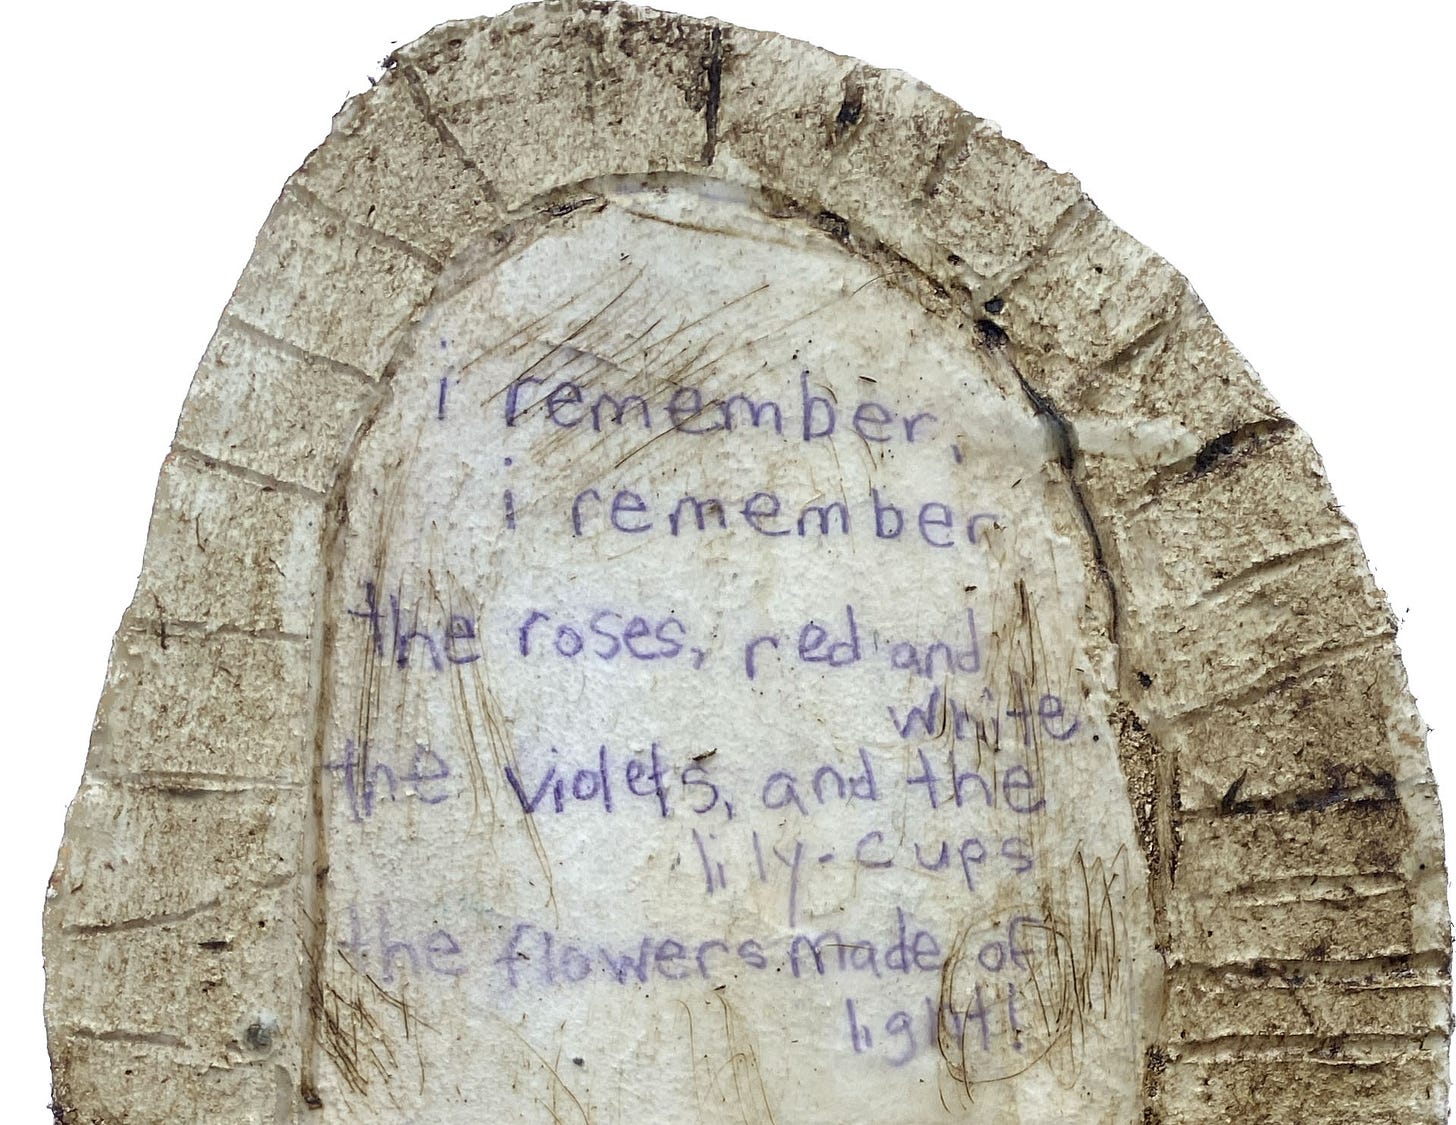 i remember,
i remember
the roses, red and
white.
the violets, and the
lily-cups
the flowers made of
light!